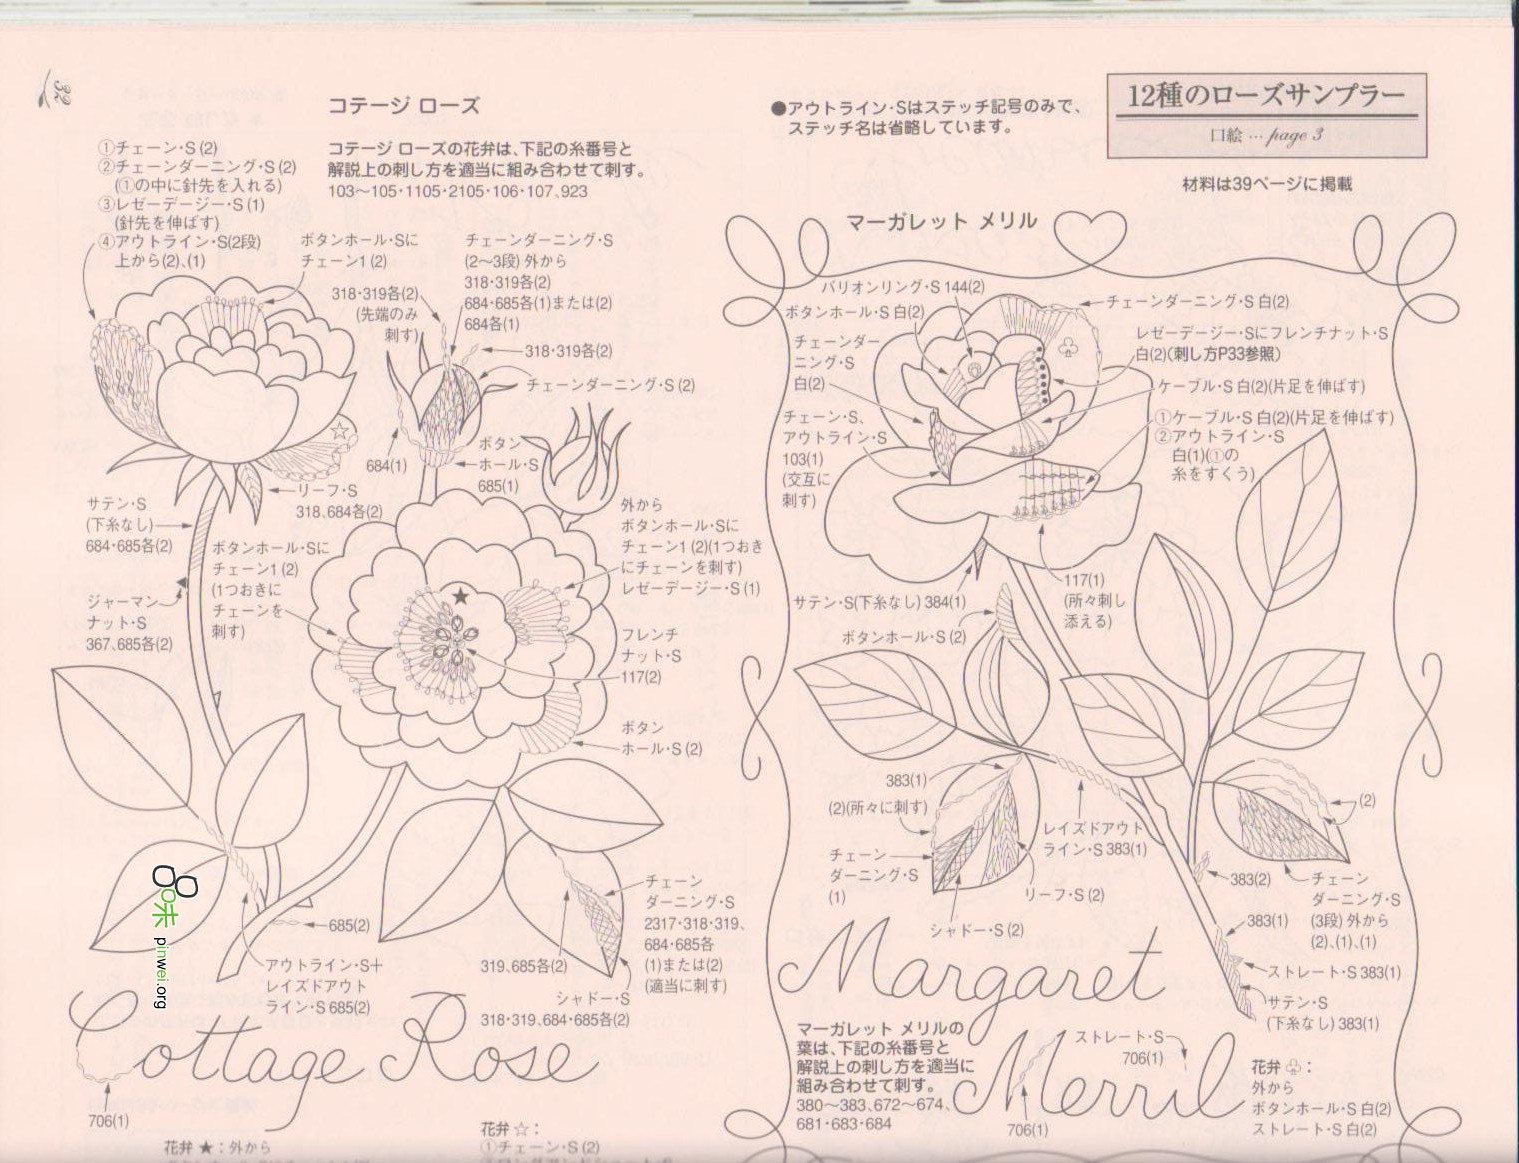 32
コテージ ローズ
コテージ ローズの花弁は、下記の糸番号と
解説上の刺し方を適当に組み合わせて刺す。
103～105・1105・2105・106・107、923
①チェーン・S(2)
②チェーンダーニング・S(2)
(①の中に針先を入れる)
③レゼーデージー・S(1)
(針先を伸ばす)
④アウトライン・S(2段)
上から(2)、(1)
ボタンホール・Sに
チェーン1(2)
318・319各(2)
(先端のみ
刺す)
チェーンダーニング・S
(2～3段)外から
318・319各(2)
684・685各(1)または(2)
684各(1)
318・319各(2)
チェーンダーニング・S(2)
684(1)
ボタン
ホール・S
685(1)
リーフ・S
318、684各(2)
サテン・S
(下糸なし)
684・685各(2)
ジャーマン
ナット・S
367、685各(2)
ボタンホール・Sに
チェーン1(2)
(1つおきに
チェーンを
刺す)
外から
ボタンホール・Sに
チェーン1(2)(1つおき
にチェーンを刺す)
レゼーデージー・S(1)
フレンチ
ナット・S
117(2)
ボタン
ホール・S(2)
685(2)
アウトライン・S＋
レイズドアウト
ライン・S 685(2)
319、685各(2)
チェーン
ダーニング・S
2317・318・319、
684・685各
(1)または(2)
(適当に刺す)
シャドー・S
318・319、684・685各(2)
Cottage Rose
706(1)
花弁 ★：外から
花弁 ☆：
①チェーン・S(2)
pinwei.org
●アウトライン・Sはステッチ記号のみで、
ステッチ名は省略しています。
12種のローズサンプラー
口絵 … page 3
材料は39ページに掲載
マーガレット メリル
バリオンリング・S 144(2)
ボタンホール・S 白(2)
チェーンダー
ニング・S
白(2)
チェーン・S、
アウトライン・S
103(1)
(交互に
刺す)
チェーンダーニング・S 白(2)
レゼーデージー・Sにフレンチナット・S
白(2)(刺し方P33参照)
ケーブル・S 白(2)(片足を伸ばす)
①ケーブル・S 白(2)(片足を伸ばす)
②アウトライン・S
白(1)(①の
糸をすくう)
117(1)
(所々刺し
添える)
サテン・S(下糸なし) 384(1)
ボタンホール・S(2)
383(1)
(2)(所々に刺す)
チェーン
ダーニング・S
(1)
シャドー・S(2)
リーフ・S(2)
レイズドアウト
ライン・S 383(1)
(2)
383(2)
チェーン
ダーニング・S
(3段)外から
(2)、(1)、(1)
383(1)
ストレート・S 383(1)
サテン・S
(下糸なし) 383(1)
Margaret
Merril
マーガレット メリルの
葉は、下記の糸番号と
解説上の刺し方を適当に
組み合わせて刺す。
380～383、672～674、
681・683・684
ストレート・S
706(1)
706(1)
花弁 ♧：
外から
ボタンホール・S 白(2)
ストレート・S 白(2)